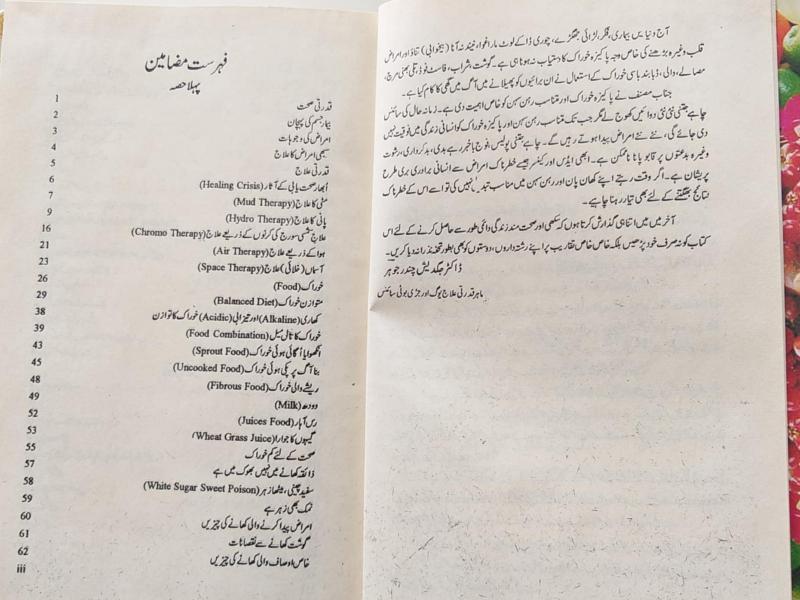 آج دنیا میں بیماری، فکر، لڑائی جھگڑے، چوری ڈاکے لوٹ مار اغوا، نیند نہ آنا (بیخوابی) تناؤ اور امراض
قلب وغیرہ بڑھنے کی خاص وجہ پاکیزہ خوراک کا دستیاب نہ ہونا ہی ہے۔ گوشت، شراب، فاسٹ فوڈ، تلی بھنی مرچ،
مصالے، والی، ڈبا بند باسی خوراک کے استعمال نے ان برائیوں کو پھیلانے میں آگ میں گھی کا کام کیا ہے۔
جناب مصنف نے پاکیزہ خوراک اور متناسب رہن سہن کو خاص اہمیت دی ہے۔ زمانہ حال کی سائنس
چاہے جتنی نئی نئی دوائیں کھوج لے مگر جب تک متناسب رہن سہن اور پاکیزہ خوراک کو انسانی زندگی میں فوقیت نہیں
دی جائے گی، نئے نئے امراض پیدا ہوتے رہیں گے۔ چاہے جتنی پولیس، فوج باخبر رہے بدی، بدکرداری، رشوت
وغیرہ بدعتوں پر قابو پانا ناممکن ہے۔ ابھی ایڈس اور کینسر جیسے خطرناک امراض سے انسانی برادری بری طرح
پریشان ہے۔ اگر وقت رہتے اپنے کھان پان اور رہن سہن میں مناسب تبدیلیاں نہیں کی تو اسے کے خطرناک
نتائج بھگتنے کے لئے بھی تیار رہنا چاہیے۔
آخر میں میں اتنا ہی گذارش کرتا ہوں کہ سکھی اور صحت مند زندگی دائمی طور سے حاصل کرنے کے لئے اس
کتاب کو نہ صرف خود پڑھیں بلکہ خاص خاص تقاریب پر اپنے رشتہ داروں، دوستوں کو بھی بطور تحفہ نذرانہ دیا کریں۔
ڈاکٹر جگدیش چندر جوہر
ماہر قدرتی علاج یوگ اور جڑی بوٹی سائنس
فہرست مضامین
پہلا حصہ
قدرتی صحت 1
بیمار جسم کی پہچان 2
امراض کی وجوہات 3
سبھی امراض کا علاج 4
قدرتی علاج 5
ابھار صحت یابی کے آثار (Healing Crisis) 6
مٹی کا علاج (Mud Therapy) 7
پانی کا علاج (Hydro Therapy) 9
علاج شمسی سورج کی کرنوں کے ذریعے علاج (Chromo Therapy) 16
ہوا کے ذریعے علاج (Air Therapy) 21
آسماں (خلائی) علاج (Space Therapy) 23
خوراک (Food) 26
متوازن خوراک (Balanced Diet) 29
کھاری (Alkaline) اور تیزابی (Acidic) خوراک کا توازن 38
خوراک کا تال میل (Food Combination) 39
انکھوا یا اُگائی ہوئی خوراک (Sprout Food) 43
بنا آگ پر پکی ہوئی خوراک (Uncooked Food) 45
ریشے والی خوراک (Fibrous Food) 48
دودھ (Milk) 49
رس آہار (Juices Food) 52
گیہوں کا جوارا (Wheat Grass Juice) 53
صحت کے لئے کم خوراک 55
ذائقہ کھانے میں نہیں بھوک میں ہے 57
سفید چینی، میٹھا زہر (White Sugar Sweet Poison) 58
نمک بھی زہر ہے 59
امراض پیدا کرنے والی کھانے کی چیزیں 60
گوشت کھانے سے نقصانات 61
خاص اوصاف والی کھانے کی چیزیں 62
iii